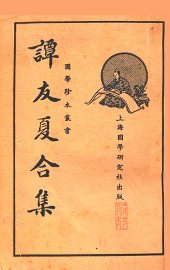 國學珍本叢書
譚友夏合集
上海國學研究社出版